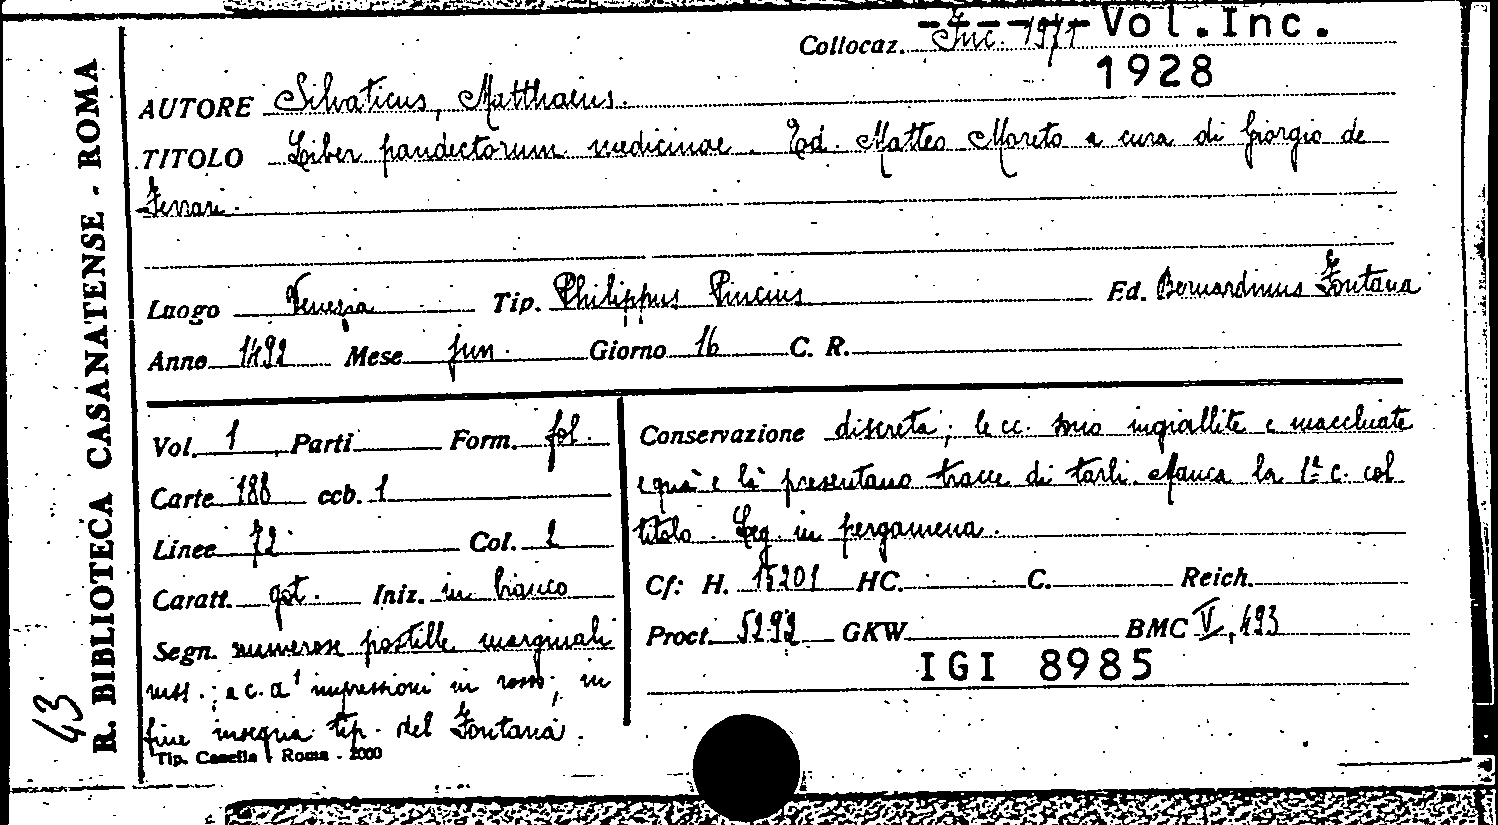 Collocaz. Inc. 1971 Vol.Inc.
1928
AUTORE Silvaticus, Matthaeus.
TITOLO Liber pandectorum medicinae. Ed. Matteo Moreto a cura di Giorgio de
Ferrari.
Luogo Venezia Tip. Philippus Pincius Ed. Bernardinus Fontana
Anno 1492 Mese jun. Giorno 16 C. R.
Vol. 1 Parti Form. fol.
Carte 188 ccb. 1
Linee 72 Col. 2
Caratt. got. Iniz. in bianco
Segn. numerose postille marginali
mss.; a c. a¹ impressioni in rosso; in
fine insegna tip. del Fontana.
Tip. Casella - Roma - 2000
Conservazione discreta; le cc. sono ingiallite e macchiate
e quà e là presentano tracce di tarli. Manca la 1ª c. col
titolo. Leg. in pergamena.
Cf: H. 15201 HC. C. Reich.
Proct. 5292 GKW. BMC V, 493
IGI 8985
R. BIBLIOTECA CASANATENSE - ROMA
43